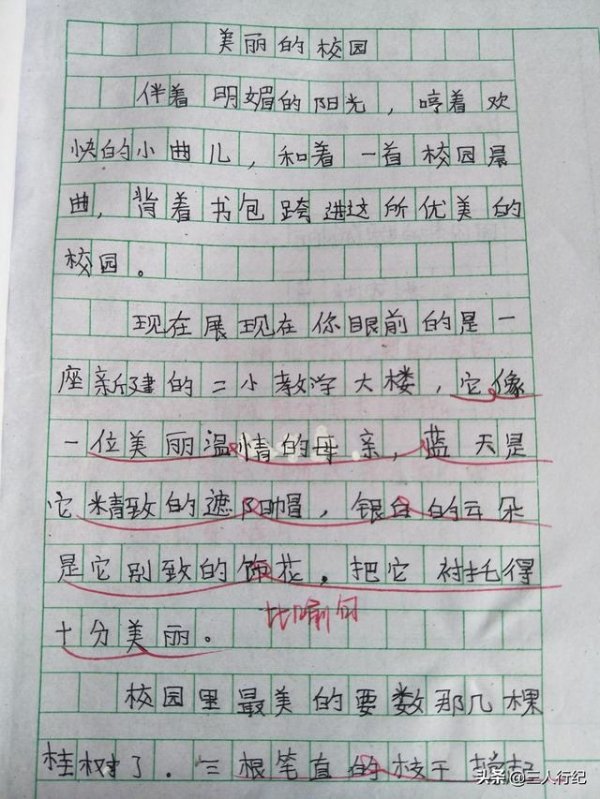 美丽的校园
伴着明媚的阳光，哼着欢
快的小曲儿，和着一首校园晨
曲，背着书包跨进这所优美的
校园。
现在展现在你眼前的是一
座新建的二小教学大楼，它像
一位美丽温情的母亲，蓝天是
它精致的遮阳帽，银白的云朵
是它别致的饰花，把它衬托得
比喻句
十分美丽。
校园里最美的要数那几棵
桂树了．三根笔直的枝干撑起
头条@三人行纪